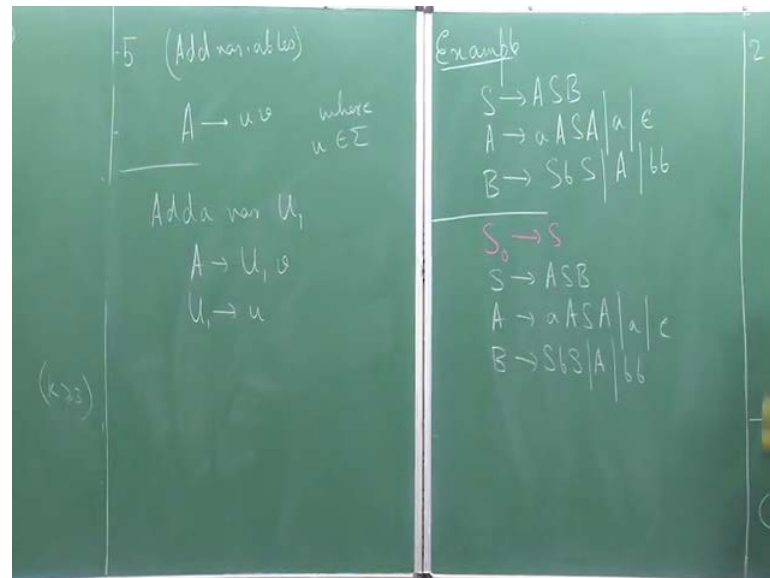 5 (Add variables)
A → uv where
u ∈ Σ
Add a var U₁
A → U₁ v
U₁ → u
(k≥3)
Example
S → ASB
A → aASA | a | ε
B → SbS | A | bb
S₀ → S
S → ASB
A → aASA | a | ε
B → SbS | A | bb
2